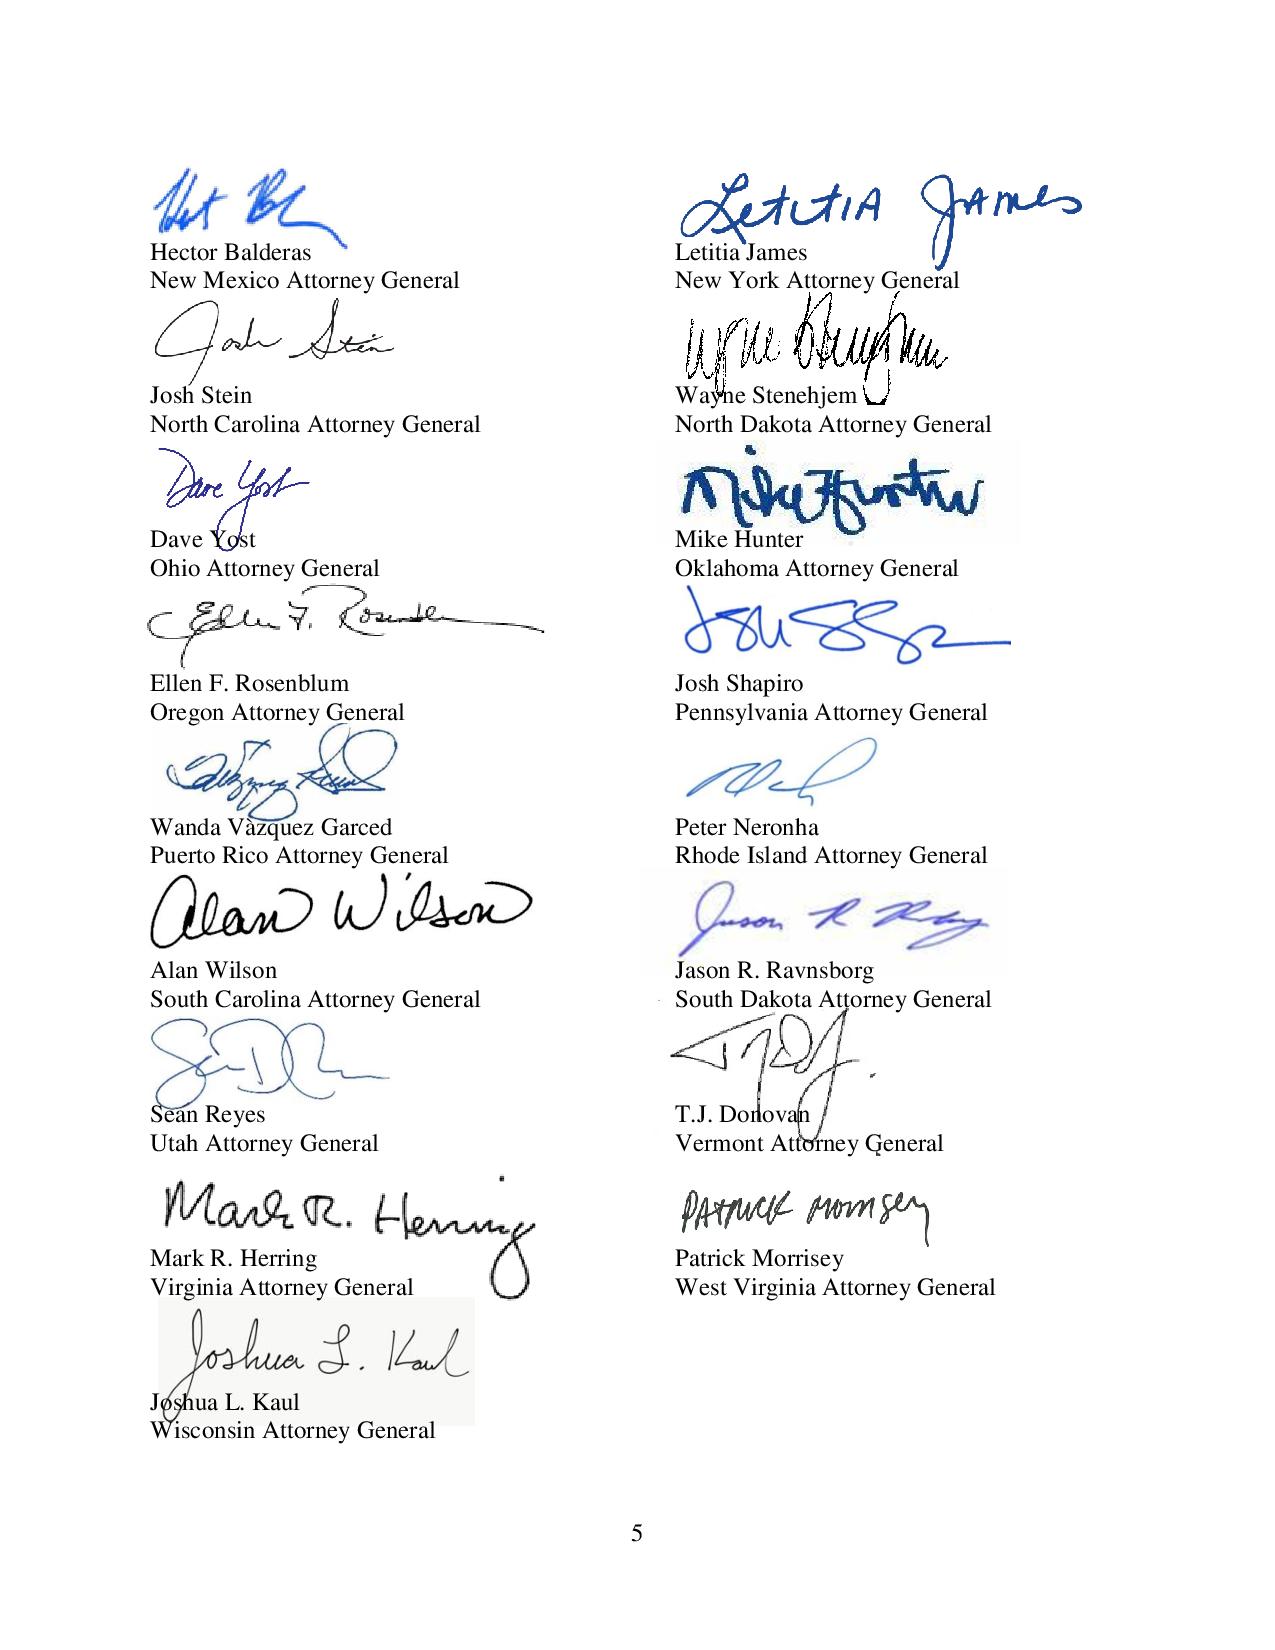 Hector Balderas
New Mexico Attorney General
Letitia James
Letitia James
New York Attorney General
Josh Stein
Josh Stein
North Carolina Attorney General
Wayne Stenehjem
North Dakota Attorney General
Dave Yost
Dave Yost
Ohio Attorney General
Mike Hunter
Mike Hunter
Oklahoma Attorney General
Ellen F. Rosenblum
Ellen F. Rosenblum
Oregon Attorney General
Josh Shapiro
Pennsylvania Attorney General
Wanda Vàzquez Garced
Puerto Rico Attorney General
Peter Neronha
Rhode Island Attorney General
Alan Wilson
Alan Wilson
South Carolina Attorney General
Jason R
Jason R. Ravnsborg
South Dakota Attorney General
Sean Reyes
Utah Attorney General
T.J. Donovan
Vermont Attorney General
Mark R. Herring
Mark R. Herring
Virginia Attorney General
Patrick Morrisey
Patrick Morrisey
West Virginia Attorney General
Joshua L. Kaul
Joshua L. Kaul
Wisconsin Attorney General
5